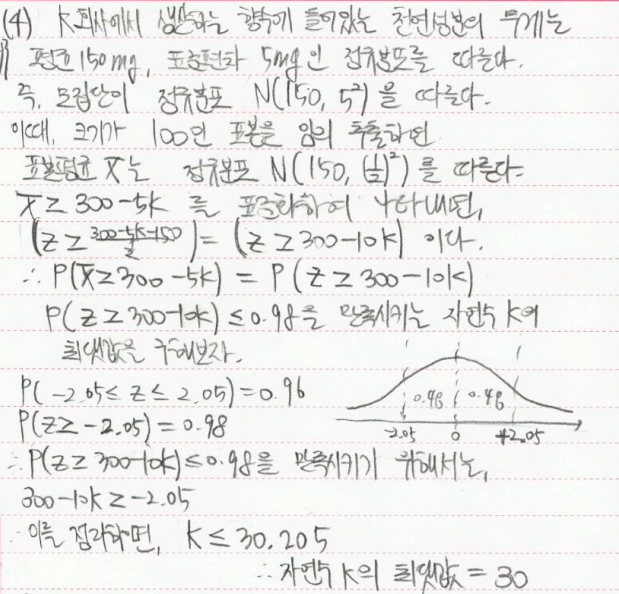 (4) K회사에서 생산하는 향수에 들어있는 천연성분의 무게는
평균 150mg, 표준편차 5mg인 정규분포를 따른다.
즉, 모집단이 정규분포 N(150, 5²)을 따른다.
이때, 크기가 100인 표본을 임의 추출하면
표본평균 X̄는 정규분포 N(150, (1/2)²)를 따른다.
X̄ ≥ 300-5k 를 표준화하여 나타내면,
(Z ≥ (300-5k-150)/(1/2)) = (Z ≥ 300-10k) 이다.
∴ P(X̄ ≥ 300-5k) = P(Z ≥ 300-10k)
P(Z ≥ 300-10k) ≤ 0.98을 만족시키는 자연수 k의
최댓값을 구해보자.
P(-2.05 ≤ Z ≤ 2.05) = 0.96
P(Z ≥ -2.05) = 0.98
0.48 0.48
-2.05 0 +2.05
∴ P(Z ≥ 300-10k) ≤ 0.98을 만족시키기 위해서는,
300-10k ≥ -2.05
이를 정리하면, k ≤ 30.205
∴ 자연수 k의 최댓값 = 30